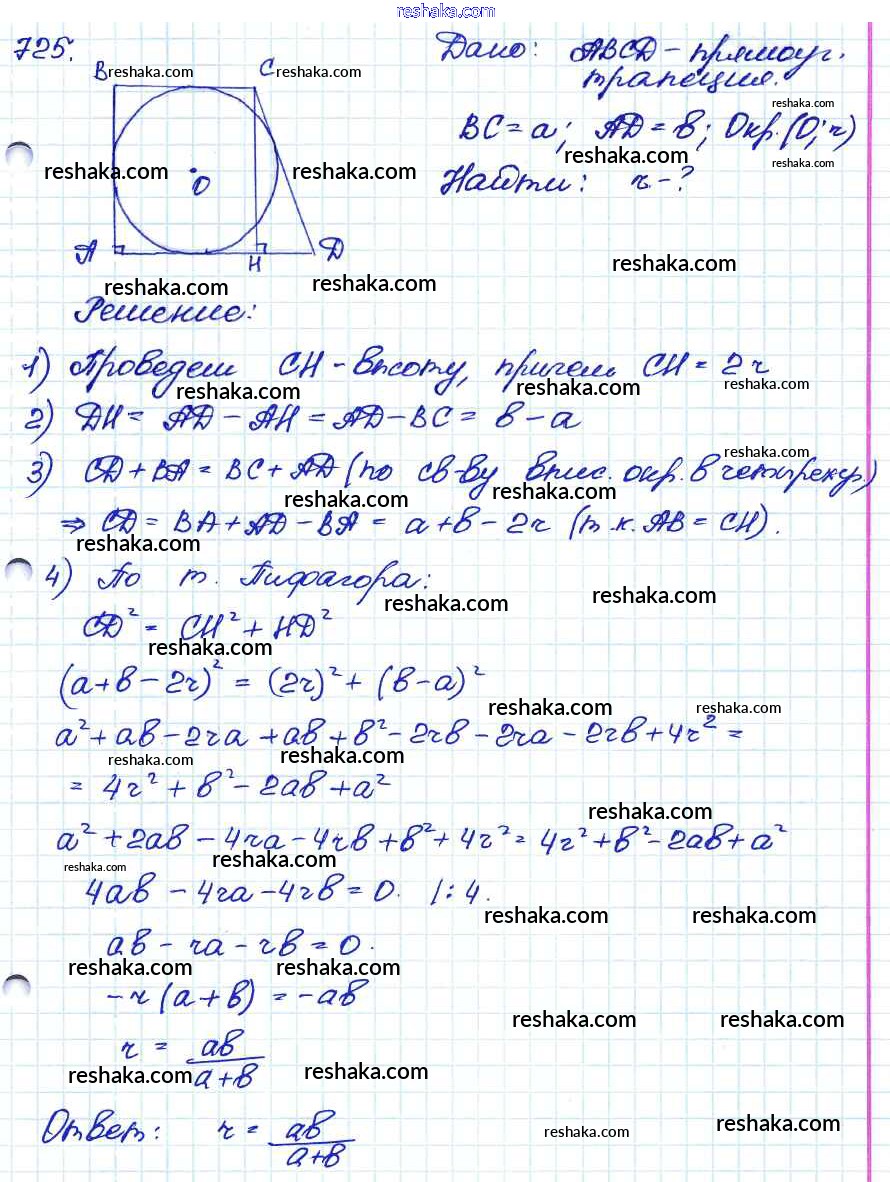 reshaka.com
725.
Дано: ABCD - прямоуг.
трапеция.
B reshaka.com C reshaka.com
reshaka.com
BC = a; AD = в; Окр.(O; r)
reshaka.com reshaka.com reshaka.com reshaka.com
Найти: r - ?
O
reshaka.com reshaka.com
A H D
reshaka.com
reshaka.com reshaka.com
Решение:
1) Проведем CH - высоту, причем CH = 2r
reshaka.com reshaka.com reshaka.com
2) DH = AD - AH = AD - BC = в - a
reshaka.com reshaka.com
reshaka.com
3) CD + BA = BC + AD (по св-ву впис. окр. в четырехуг.)
reshaka.com reshaka.com
⇒ CD = BA + AD - BA = a + в - 2r (т.к. AB = CH).
reshaka.com
4) По т. Пифагора:
reshaka.com reshaka.com
CD² = CH² + HD²
reshaka.com
(a + в - 2r)² = (2r)² + (в - a)²
reshaka.com reshaka.com
a² + aв - 2ra + aв + в² - 2rв - 2ra - 2rв + 4r² =
reshaka.com reshaka.com
= 4r² + в² - 2aв + a²
reshaka.com
a² + 2aв - 4ra - 4rв + в² + 4r² = 4r² + в² - 2aв + a²
reshaka.com reshaka.com
4aв - 4ra - 4rв = 0. /: 4.
reshaka.com reshaka.com
aв - ra - rв = 0.
reshaka.com reshaka.com
- r (a + в) = - aв
reshaka.com reshaka.com
r = aв
a + в
reshaka.com reshaka.com
Ответ: r = aв
a + в
reshaka.com reshaka.com